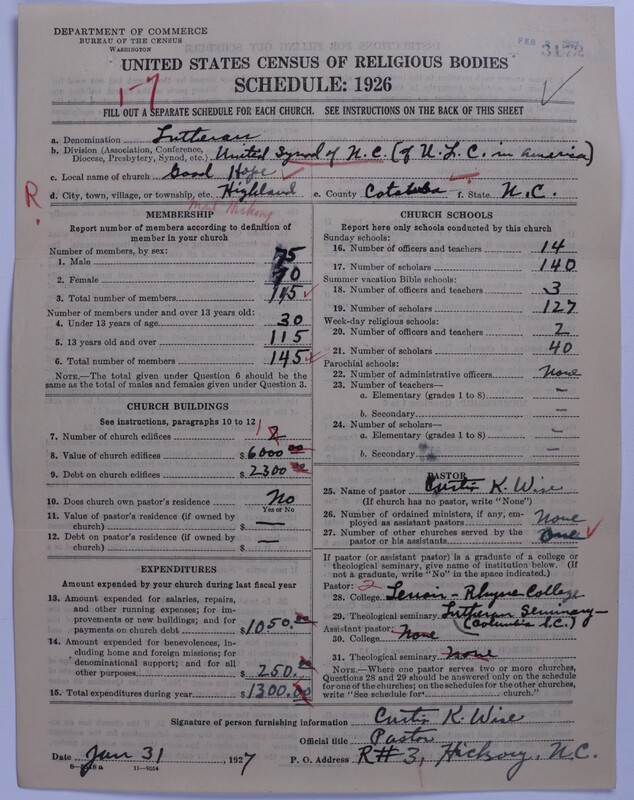 DEPARTMENT OF COMMERCE
BUREAU OF THE CENSUS
WASHINGTON
3172
UNITED STATES CENSUS OF RELIGIOUS BODIES
SCHEDULE: 1926
1-7
FILL OUT A SEPARATE SCHEDULE FOR EACH CHURCH. SEE INSTRUCTIONS ON THE BACK OF THIS SHEET
a. Denomination Lutheran
b. Division (Association, Conference, Diocese, Presbytery, Synod, etc.) United Synod of N.C. (of U.L.C. in America)
c. Local name of church Good Hope
R.
d. City, town, village, or township, etc. Highland e. County Catawba f. State N.C.
Mail Hickory
MEMBERSHIP
Report number of members according to definition of
member in your church
Number of members, by sex:
1. Male 75
2. Female 70
3. Total number of members 145
Number of members under and over 13 years old:
4. Under 13 years of age 30
5. 13 years old and over 115
6. Total number of members 145
NOTE.—The total given under Question 6 should be the
same as the total of males and females given under Question 3.
CHURCH BUILDINGS
See instructions, paragraphs 10 to 12
7. Number of church edifices 1
8. Value of church edifices $ 6000 00
9. Debt on church edifices $ 2300 00
10. Does church own pastor's residence No
Yes or No
11. Value of pastor's residence (if owned by
church) $ —
12. Debt on pastor's residence (if owned by
church) $ —
EXPENDITURES
Amount expended by your church during last fiscal year
13. Amount expended for salaries, repairs,
and other running expenses; for im-
provements or new buildings; and for
payments on church debt $ 1050.00
14. Amount expended for benevolences, in-
cluding home and foreign missions; for
denominational support; and for all
other purposes $ 250.00
15. Total expenditures during year $ 1300.00
CHURCH SCHOOLS
Report here only schools conducted by this church
Sunday schools:
16. Number of officers and teachers 14
17. Number of scholars 140
Summer vacation Bible schools:
18. Number of officers and teachers 3
19. Number of scholars 127
Week-day religious schools:
20. Number of officers and teachers 2
21. Number of scholars 40
Parochial schools:
22. Number of administrative officers None
23. Number of teachers—
a. Elementary (grades 1 to 8) —
b. Secondary —
24. Number of scholars—
a. Elementary (grades 1 to 8) —
b. Secondary —
PASTOR
25. Name of pastor Curtis K. Wise
(If church has no pastor, write "None")
26. Number of ordained ministers, if any, em-
ployed as assistant pastors None
27. Number of other churches served by the
pastor or his assistants One
If pastor (or assistant pastor) is a graduate of a college or
theological seminary, give name of institution below. (If
not a graduate, write "No" in the space indicated.)
Pastor: 2
28. College Lenoir-Rhyne College
29. Theological seminary Lutheran Seminary—
(Columbia S.C.)
Assistant pastor:
30. College None
31. Theological seminary None
NOTE.—Where one pastor serves two or more churches,
Questions 28 and 29 should be answered only on the schedule
for one of the churches; on the schedules for the other churches,
write "See schedule for church."
Signature of person furnishing information Curtis K. Wise
Official title Pastor
Date Jan 31, 1927 P. O. Address R#3, Hickory, N.C.
11—9514